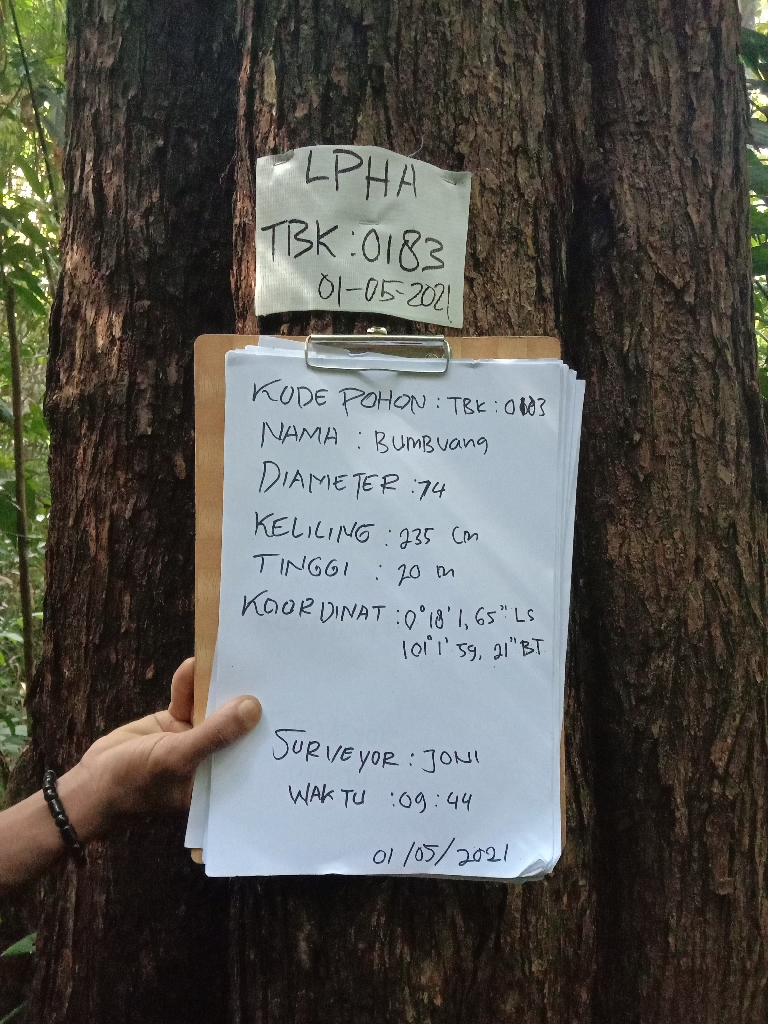 LPHA
TBK : 0183
01-05-2021
KODE POHON : TBK : 0183
NAMA : BUMBUANG
DIAMETER : 74
KELILING : 235 Cm
TINGGI : 20 m
KOORDINAT : 0° 18' 1, 65" LS
101° 1' 59, 21" BT
SURVEYOR : JONI
WAKTU : 09 : 44
01/05/2021